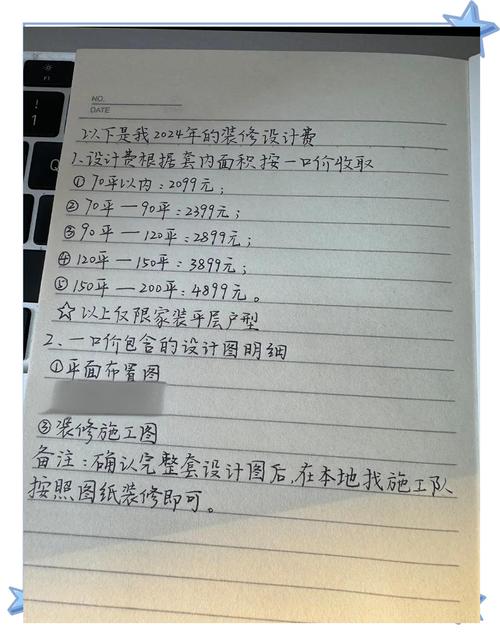 NO.
DATE
以下是我2024年的装修设计费
1、设计费根据套内面积按一口价收取
① 70平以内：2099元；
② 70平一90平：2399元；
③ 90平一120平：2899元；
④ 120平一150平：3899元；
⑤ 150平一200平：4899元。
☆以上仅限家装平层户型
2、一口价包含的设计图明细
①平面布置图
③装修施工图
备注：确认完整套设计图后，在本地找施工队
按照图纸装修即可。